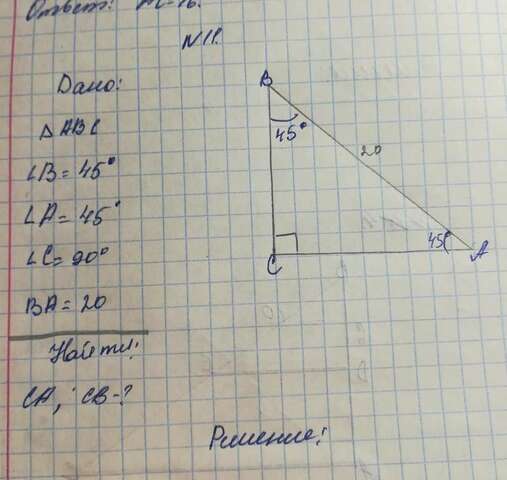 Ответ:
N 11.
Дано:
△ ABC
∠B = 45°
∠A = 45°
∠C = 90°
BA = 20
Найти:
CA, CB - ?
B
45°
20
45°
C
A
Решение: